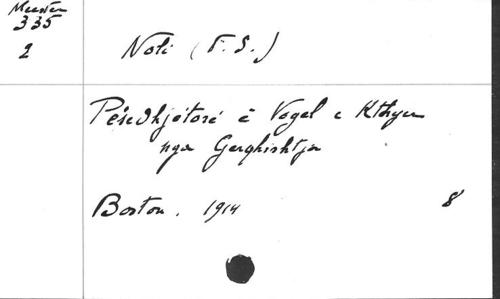 Meester
335
2
Noli (F. S.)
Pésedhjétoré è Vogel e Kthyer
nga Gerqhishtja
Boston. 1914 8